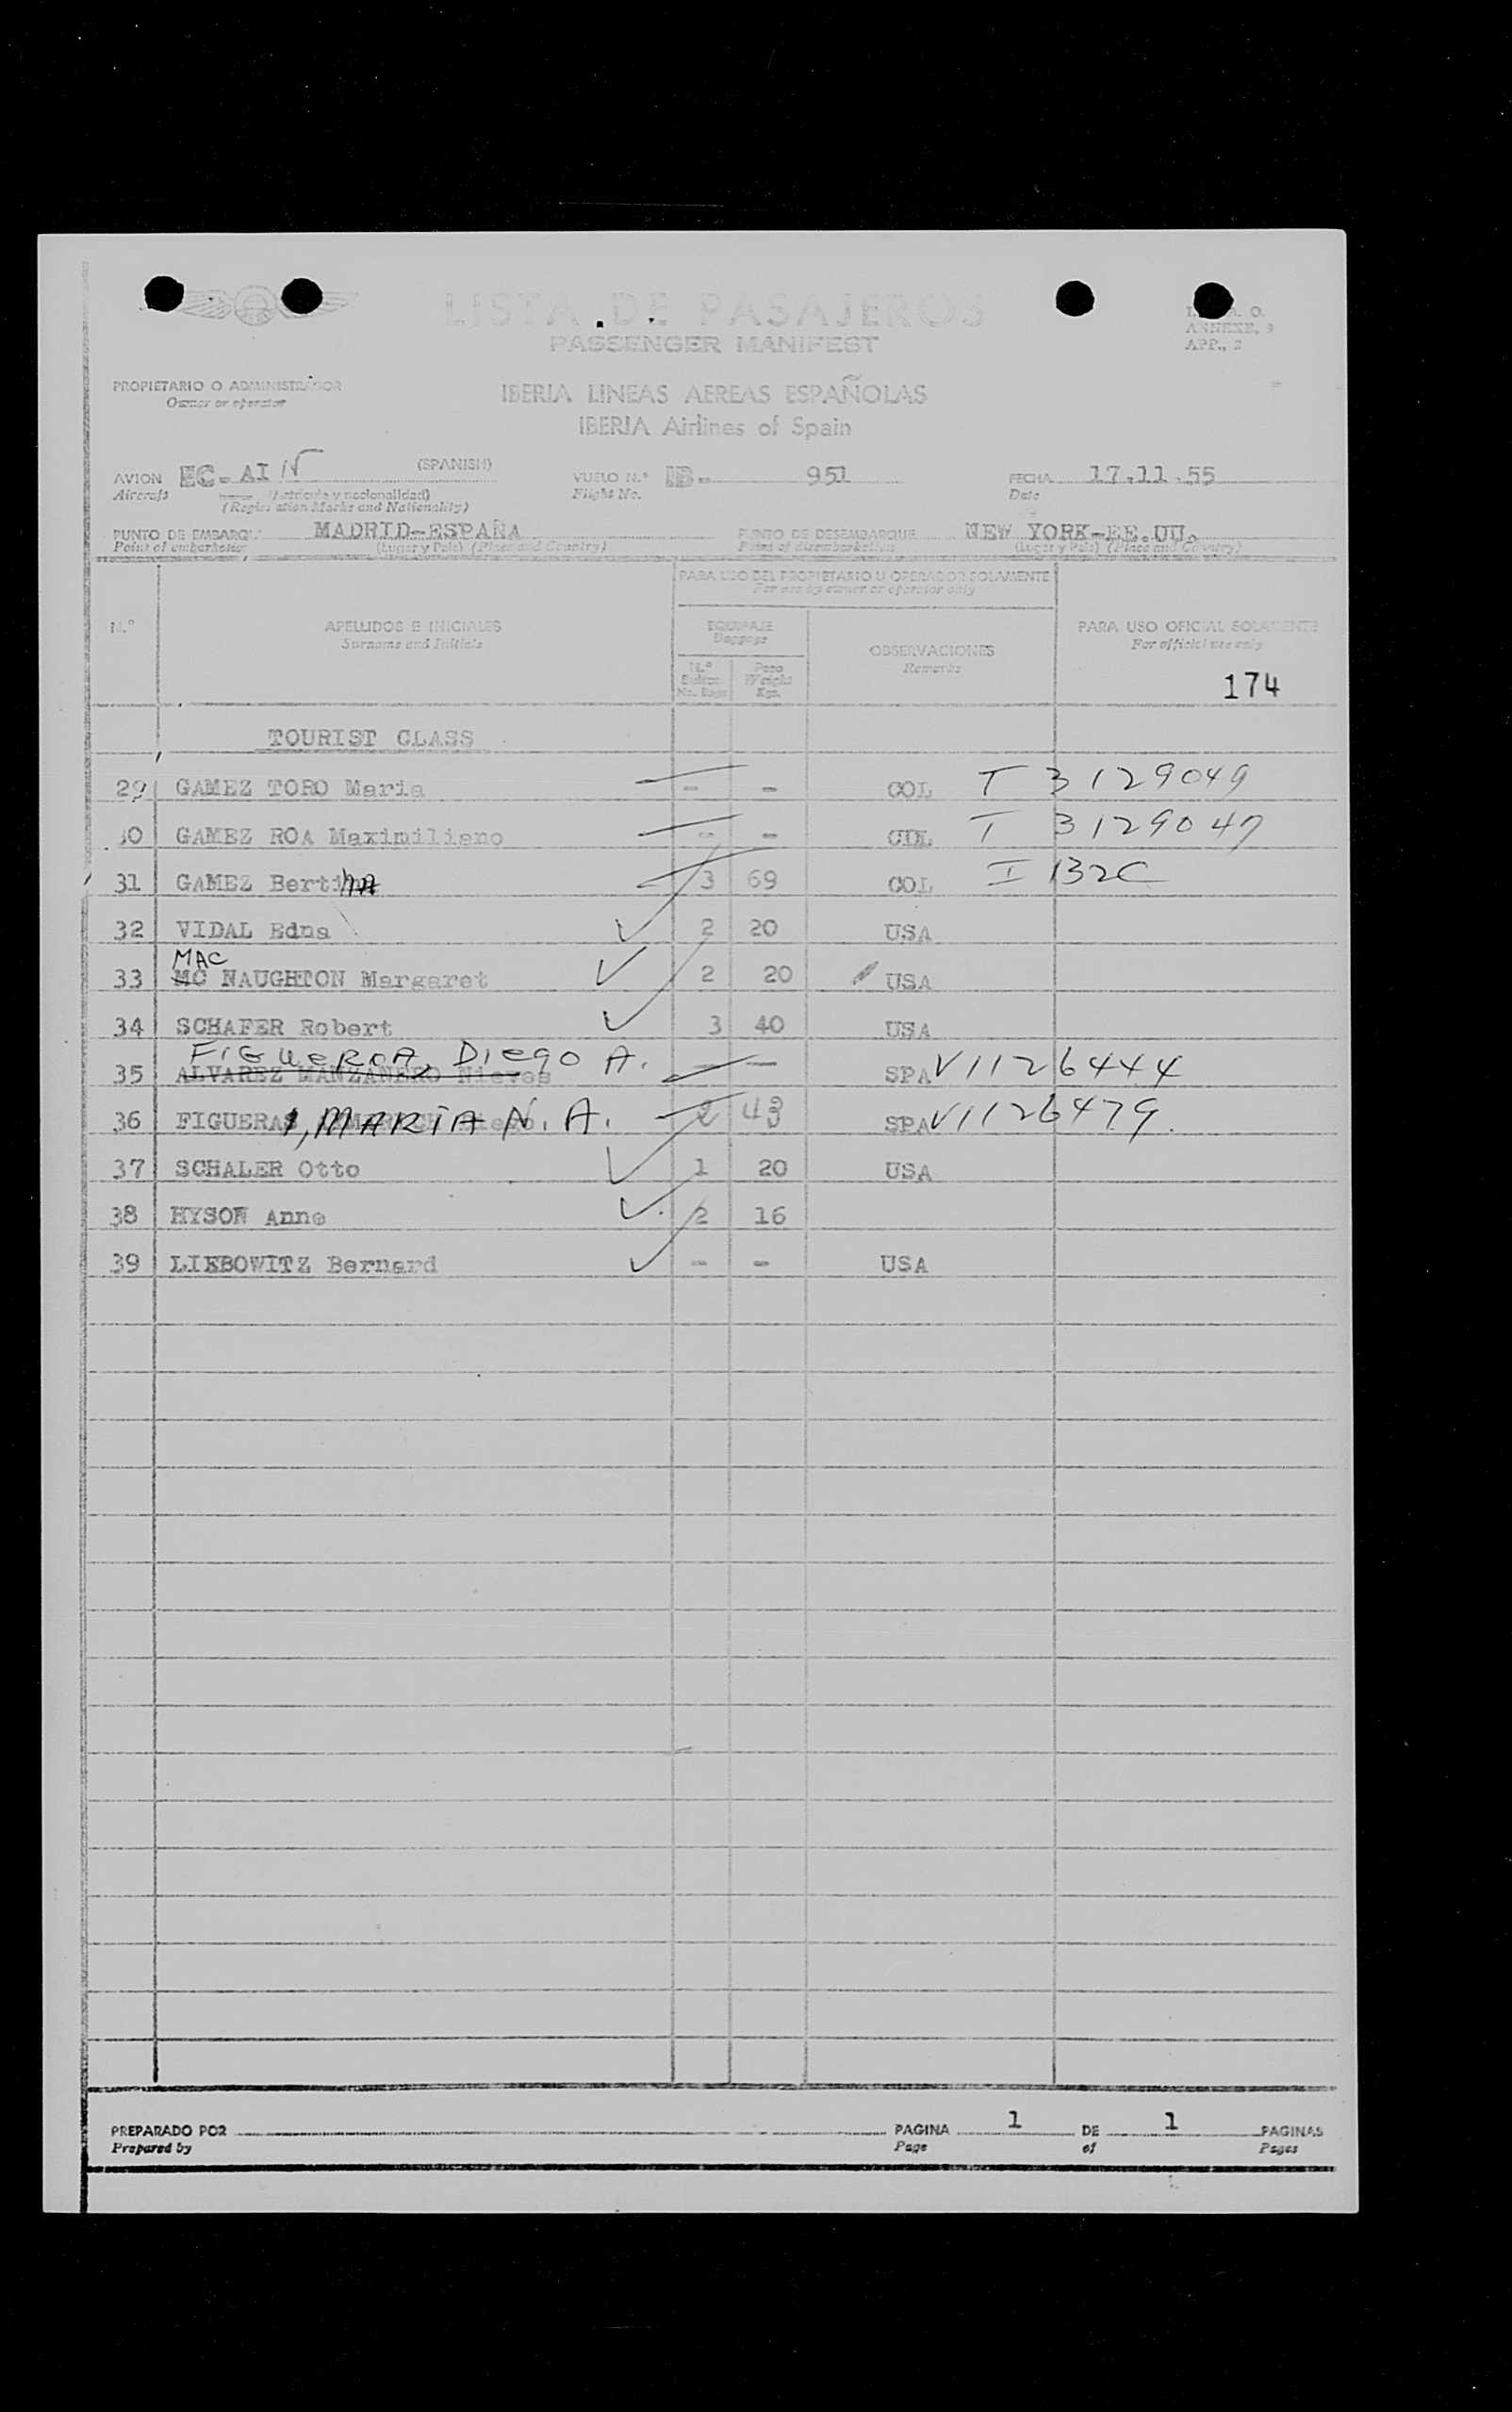 LISTA DE PASAJEROS
PASSENGER MANIFEST
A. O.
ANNEXE, 9
APP., 2
PROPIETARIO O ADMINISTRADOR
Owner or operator
IBERIA LINEAS AEREAS ESPAÑOLAS
IBERIA Airlines of Spain
AVION EC-AIN (SPANISH) VUELO N.º IB- 951 FECHA 17.11.55
Aircraft (Matrícula y nacionalidad) Flight No. Date
(Registration Marks and Nationality)
PUNTO DE EMBARQUE MADRID-ESPAÑA PUNTO DE DESEMBARQUE NEW YORK-EE.UU.
Point of embarkation (Lugar y País) (Place and Country) Point of disembarkation (Lugar y País) (Place and Country)
PARA USO DEL PROPIETARIO U OPERADOR SOLAMENTE
For use by owner or operator only
N.º APELLIDOS E INICIALES EQUIPAJE OBSERVACIONES PARA USO OFICIAL SOLAMENTE
Surname and Initials Baggage Remarks For official use only
N.º Bultos Peso
No. Bags Weight Kgs.
174
TOURIST CLASS
29 GAMEZ TORO Maria - - COL T 3129049
30 GAMEZ ROA Maximiliano - - COL T 3129047
31 GAMEZ Bertina 3 69 COL I 132C
32 VIDAL Edna 2 20 USA
MAC
33 MC NAUGHTON Margaret 2 20 USA
34 SCHAFER Robert 3 40 USA
FIGUEROA, Diego A.
35 ALVAREZ MANZANERO Nieves - - SPA V1126444
36 FIGUERAS, MARIA N. A. 2 43 SPA V1126479
37 SCHALER Otto 1 20 USA
38 HYSON Anne 2 16
39 LIEBOWITZ Bernard - - USA
PREPARADO POR PAGINA 1 DE 1 PAGINAS
Prepared by Page of Pages